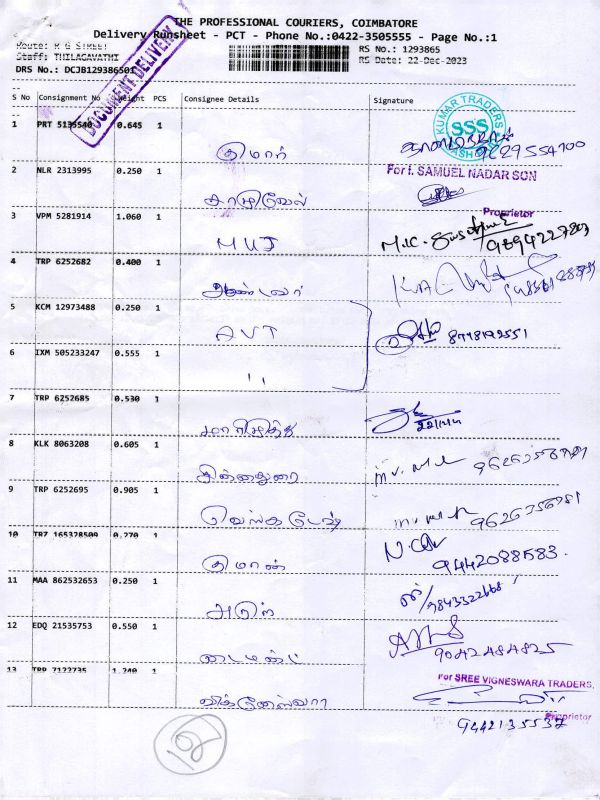 THE PROFESSIONAL COURIERS, COIMBATORE
Delivery Runsheet - PCT - Phone No.:0422-3505555 - Page No.:1
Route: R G STREET
RS No.: 1293865
Staff: THILAGAVATHI
RS Date: 22-Dec-2023
DRS No.: DCJB129386501
DOCUMENT DELIVERY
S No Consignment No Weight PCS Consignee Details Signature
1 PRT 5135540 0.645 1
குமார்
KUMAR TRADERS
SSS
9629554700
2 NLR 2313995 0.250 1
For I. SAMUEL NADAR SON
Proprietor
3 VPM 5281914 1.060 1
MUJ
4 TRP 6252682 0.400 1
5 KCM 12973488 0.250 1
AVT
8778192551
6 IXM 505233247 0.555 1
"
7 TRP 6252685 0.530 1
8 KLK 8063208 0.605 1
சின்னதுரை
9 TRP 6252695 0.905 1
வெங்கடேஷ்
10 TRZ 165378509 0.270 1
9442088583.
11 MAA 862532653 0.250 1
9843322668
12 EDQ 21535753 0.550 1
டைமண்ட்
9042484825
13 TRP 7122735 1.240 1
விக்னேஸ்வரா
For SREE VIGNESWARA TRADERS,
Proprietor
9442135537